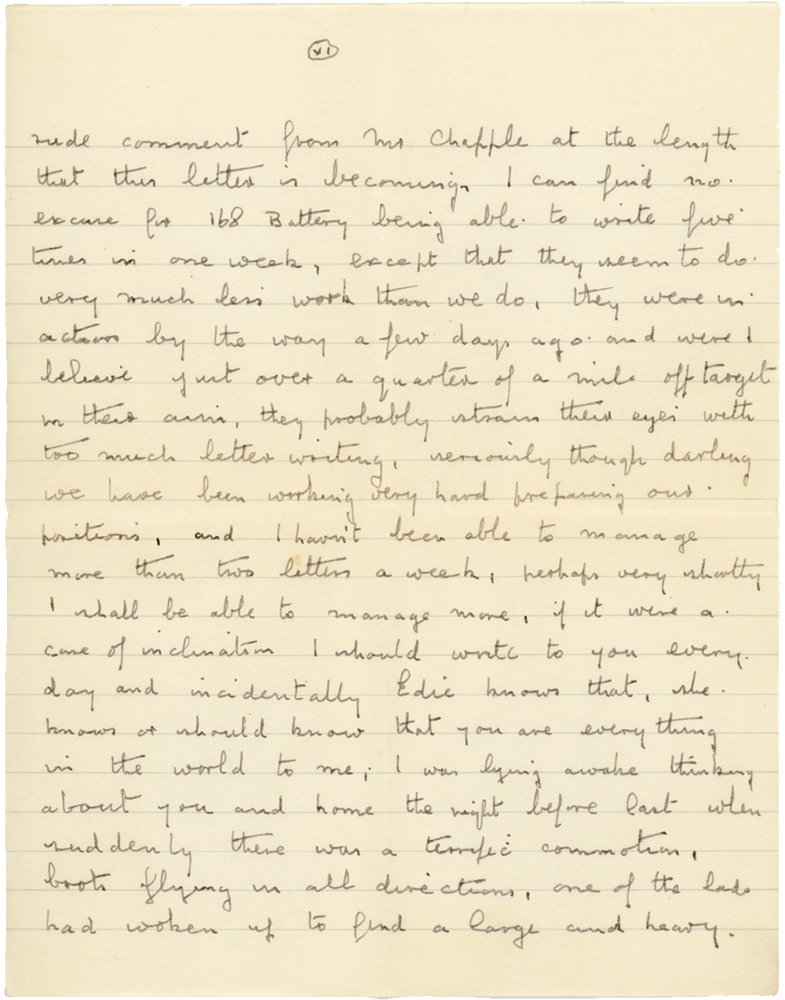 VI
rude comment from Mr Chapple at the length
that this letter is becoming, I can find no
excuse for 168 Battery being able to write five
times in one week, except that they seem to do
very much less work than we do, they were in
action by the way a few days ago and were I
believe just over a quarter of a mile off target
in their aim, they probably strain their eyes with
too much letter writing, seriously though darling
we have been working very hard preparing our
positions, and I havn't been able to manage
more than two letters a week, perhaps very shortly
I shall be able to manage more, if it were a
case of inclination I should write to you every
day and incidentally Edie knows that, she
knows or should know that you are everything
in the world to me; I was lying awake thinking
about you and home the night before last when
suddenly there was a terrific commotion,
boots flying in all directions, one of the lads
had woken up to find a large and heavy.